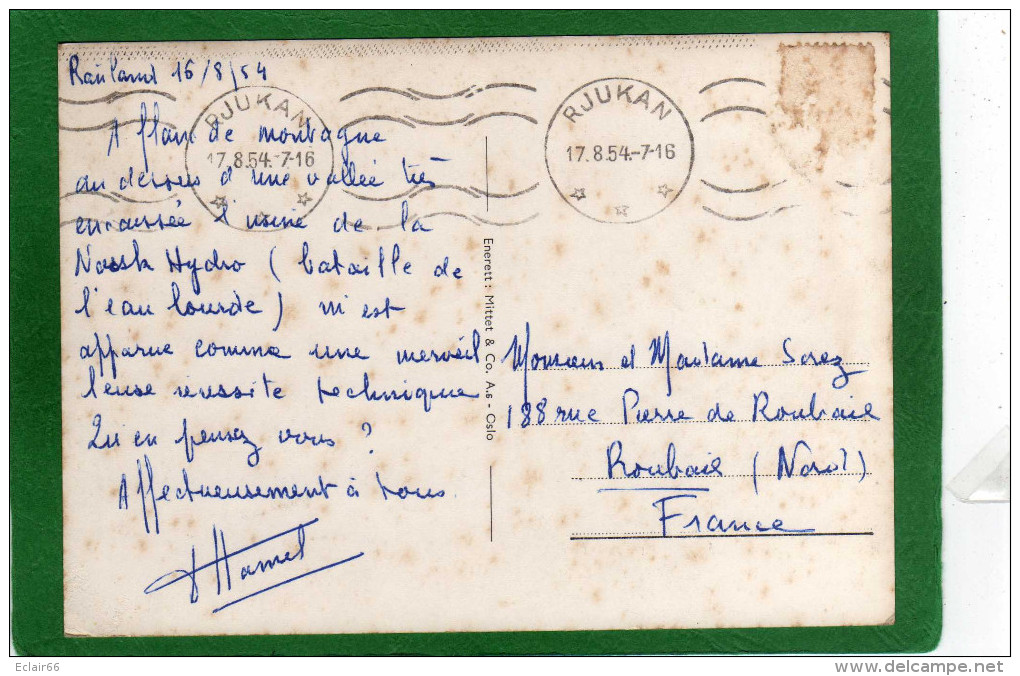 Rauland 16/8/54
RJUKAN
17.8.54.-7-16
RJUKAN
17.8.54.-7-16
A flanc de montagne
au dessous d'une vallée très
encaissée l'usine de la
Norsk Hydro (bataille de
l'eau lourde) m'est
apparue comme une merveil
leuse réussite technique
Qu'en pensez vous ?
Affectueusement à tous
Hamel
Enerett: Mittet & Co. A.s - Oslo
Monsieur et Madame Sorez
188 rue Pierre de Roubaix
Roubaix (Nord)
France
Eclair66
www.delcampe.net